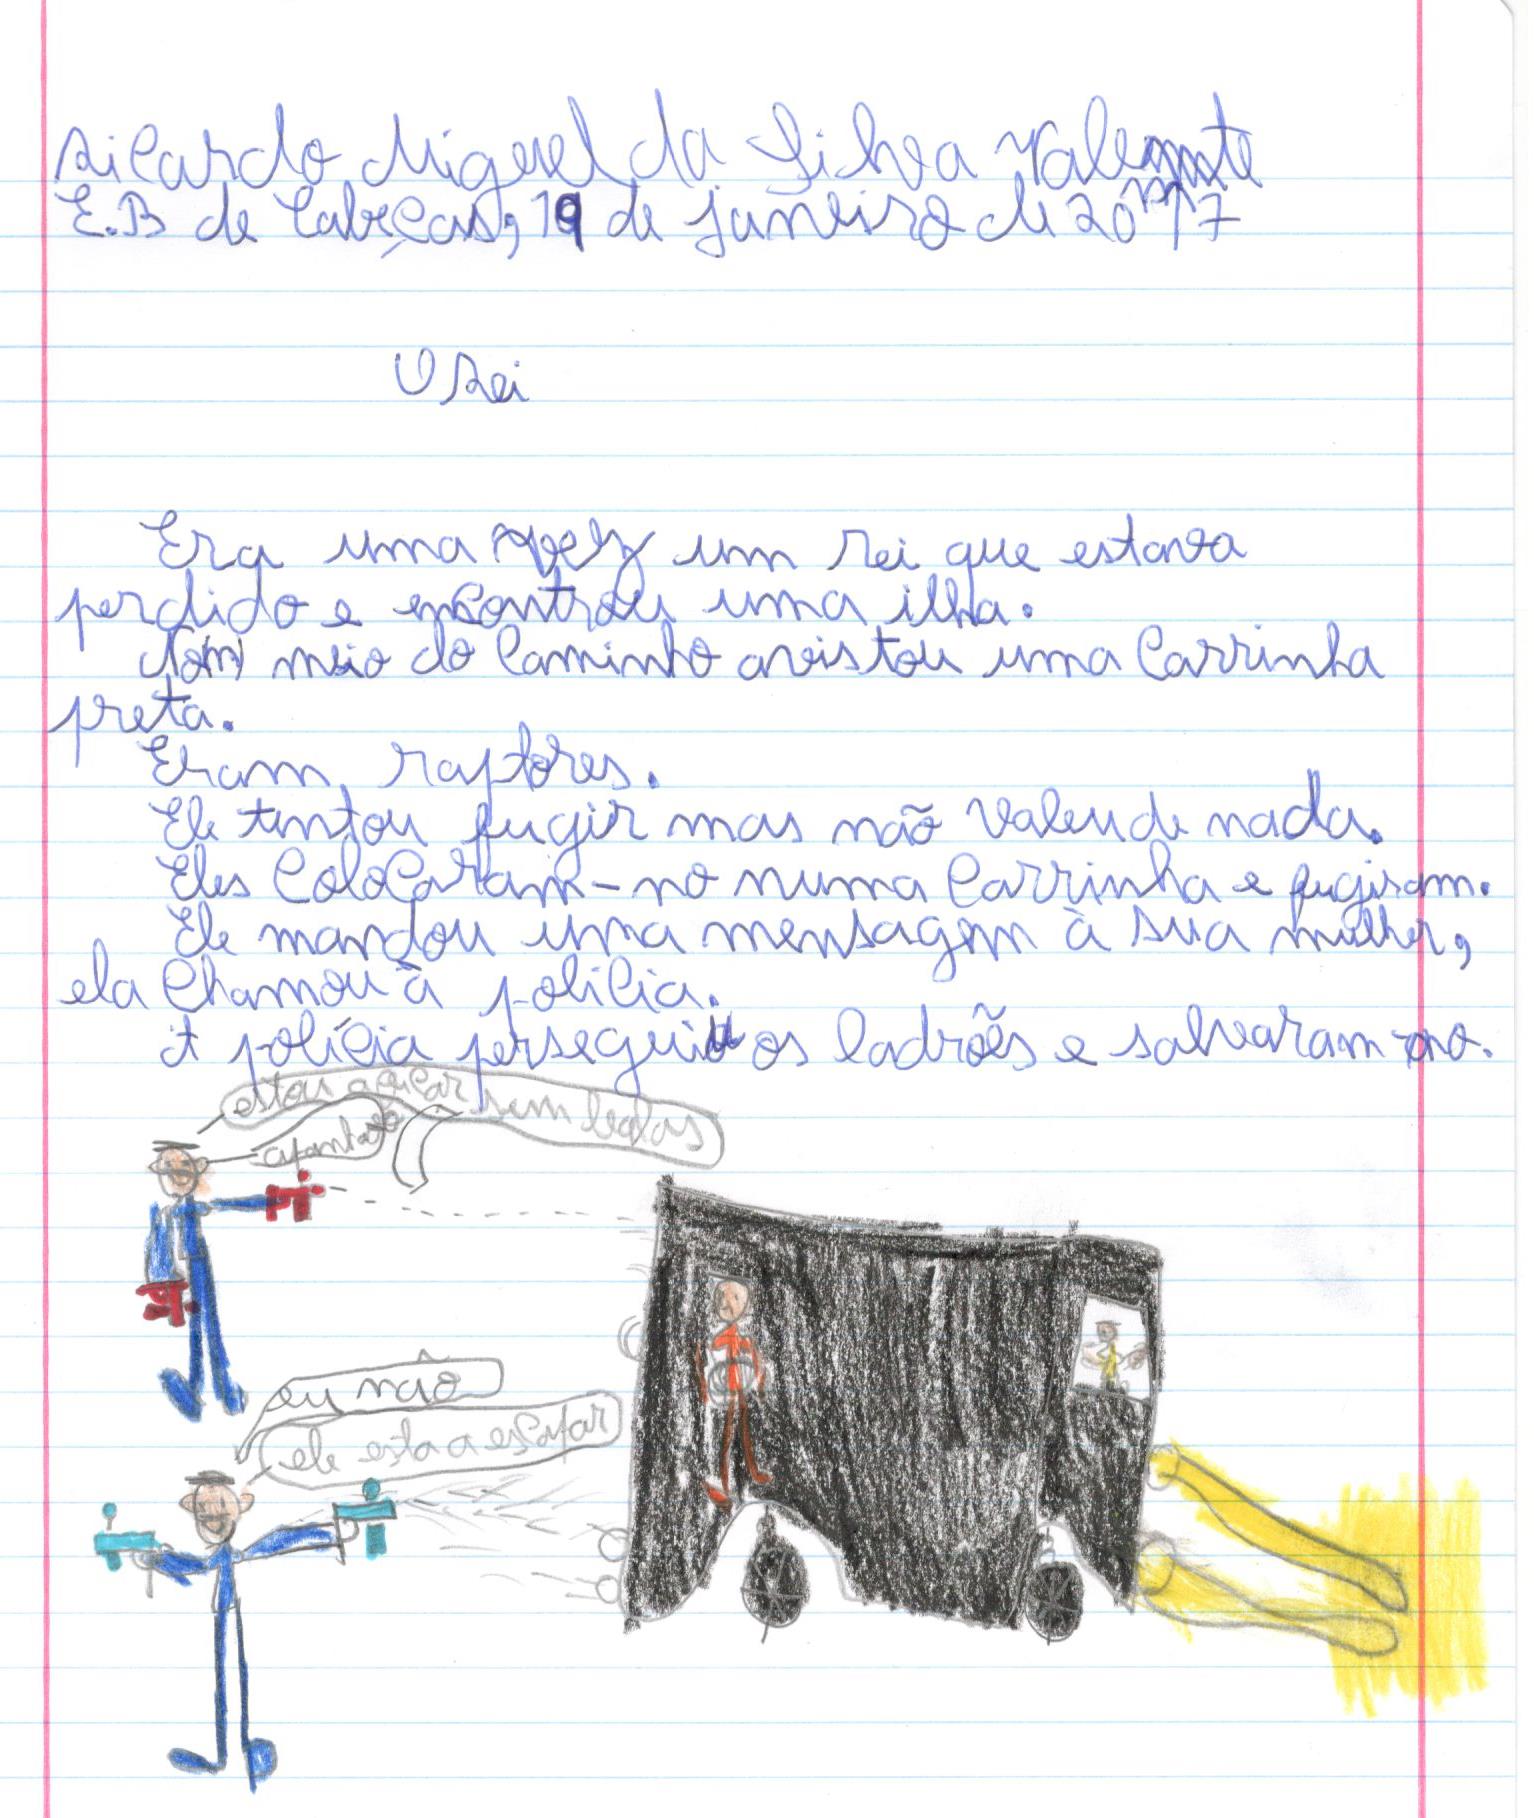 Ricardo Miguel da Silva Valente
E.B de Cabeças, 19 de janeiro de 2017
O rei
Era uma vez um rei que estava
perdido e encontrou uma ilha.
No meio do caminho avistou uma carrinha
preta.
Eram raptores.
Ele tentou fugir mas não valeu de nada.
Eles colocaram-no numa carrinha e fugiram.
Ele mandou uma mensagem à sua mulher,
ela chamou à polícia.
A polícia perseguiu os ladrões e salvaram-no.
estou a ficar sem balas
eu não
ele esta a escapar